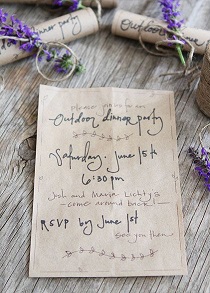 dinner party
Outdoor dinner party
please join us for an
Outdoor dinner party
Saturday, June 15th
6:30pm
Josh and Maria Lichty's
come around back!
RSVP by June 1st
see you then